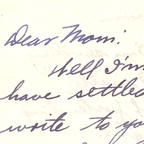 Dear Mom:
Well I'm
have settled
write to you